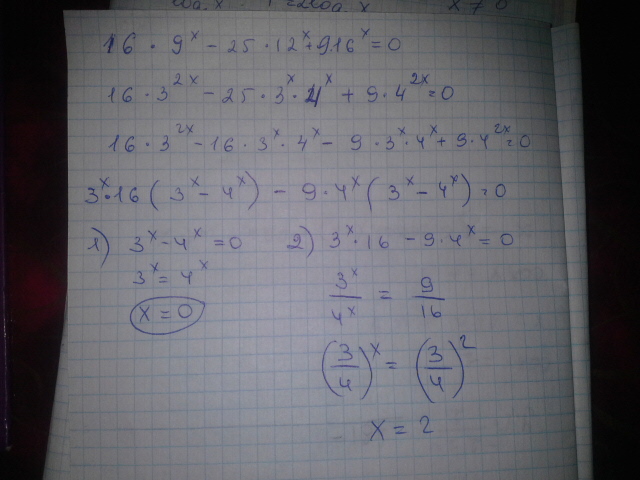 16 · 9^x - 25 · 12^x + 9 16^x = 0
16 · 3^2x - 25 · 3^x · 4^x + 9 · 4^2x = 0
16 · 3^2x - 16 · 3^x · 4^x - 9 · 3^x · 4^x + 9 · 4^2x = 0
3^x · 16 ( 3^x - 4^x ) - 9 · 4^x ( 3^x - 4^x ) = 0
1) 3^x - 4^x = 0
3^x = 4^x
x = 0
2) 3^x · 16 - 9 · 4^x = 0
3^x / 4^x = 9 / 16
(3/4)^x = (3/4)^2
x = 2